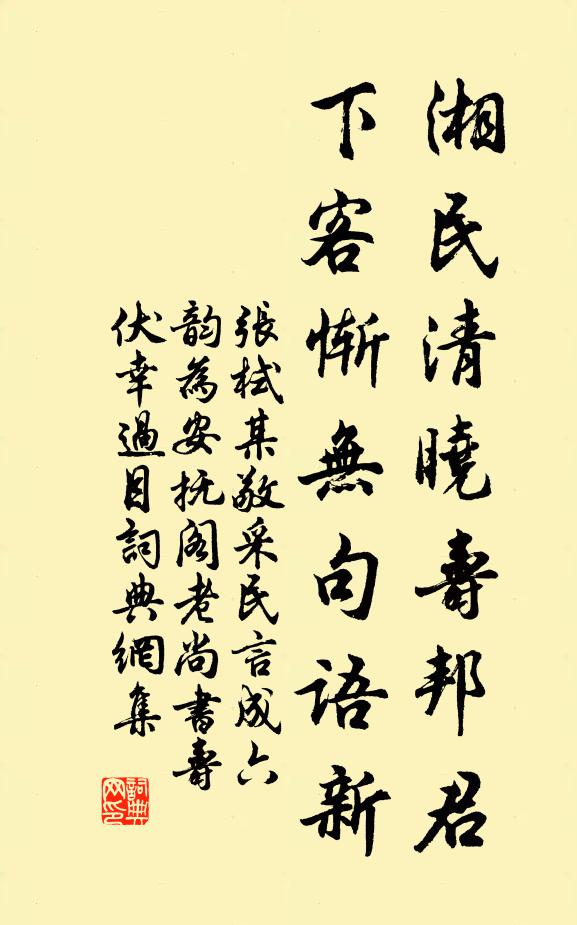 湘民清曉壽邦君
下客慚無句語新
張栻某敬采民言成六
韵為安抚阁老尚書壽
伏幸過目詞典網集
詞典
网印